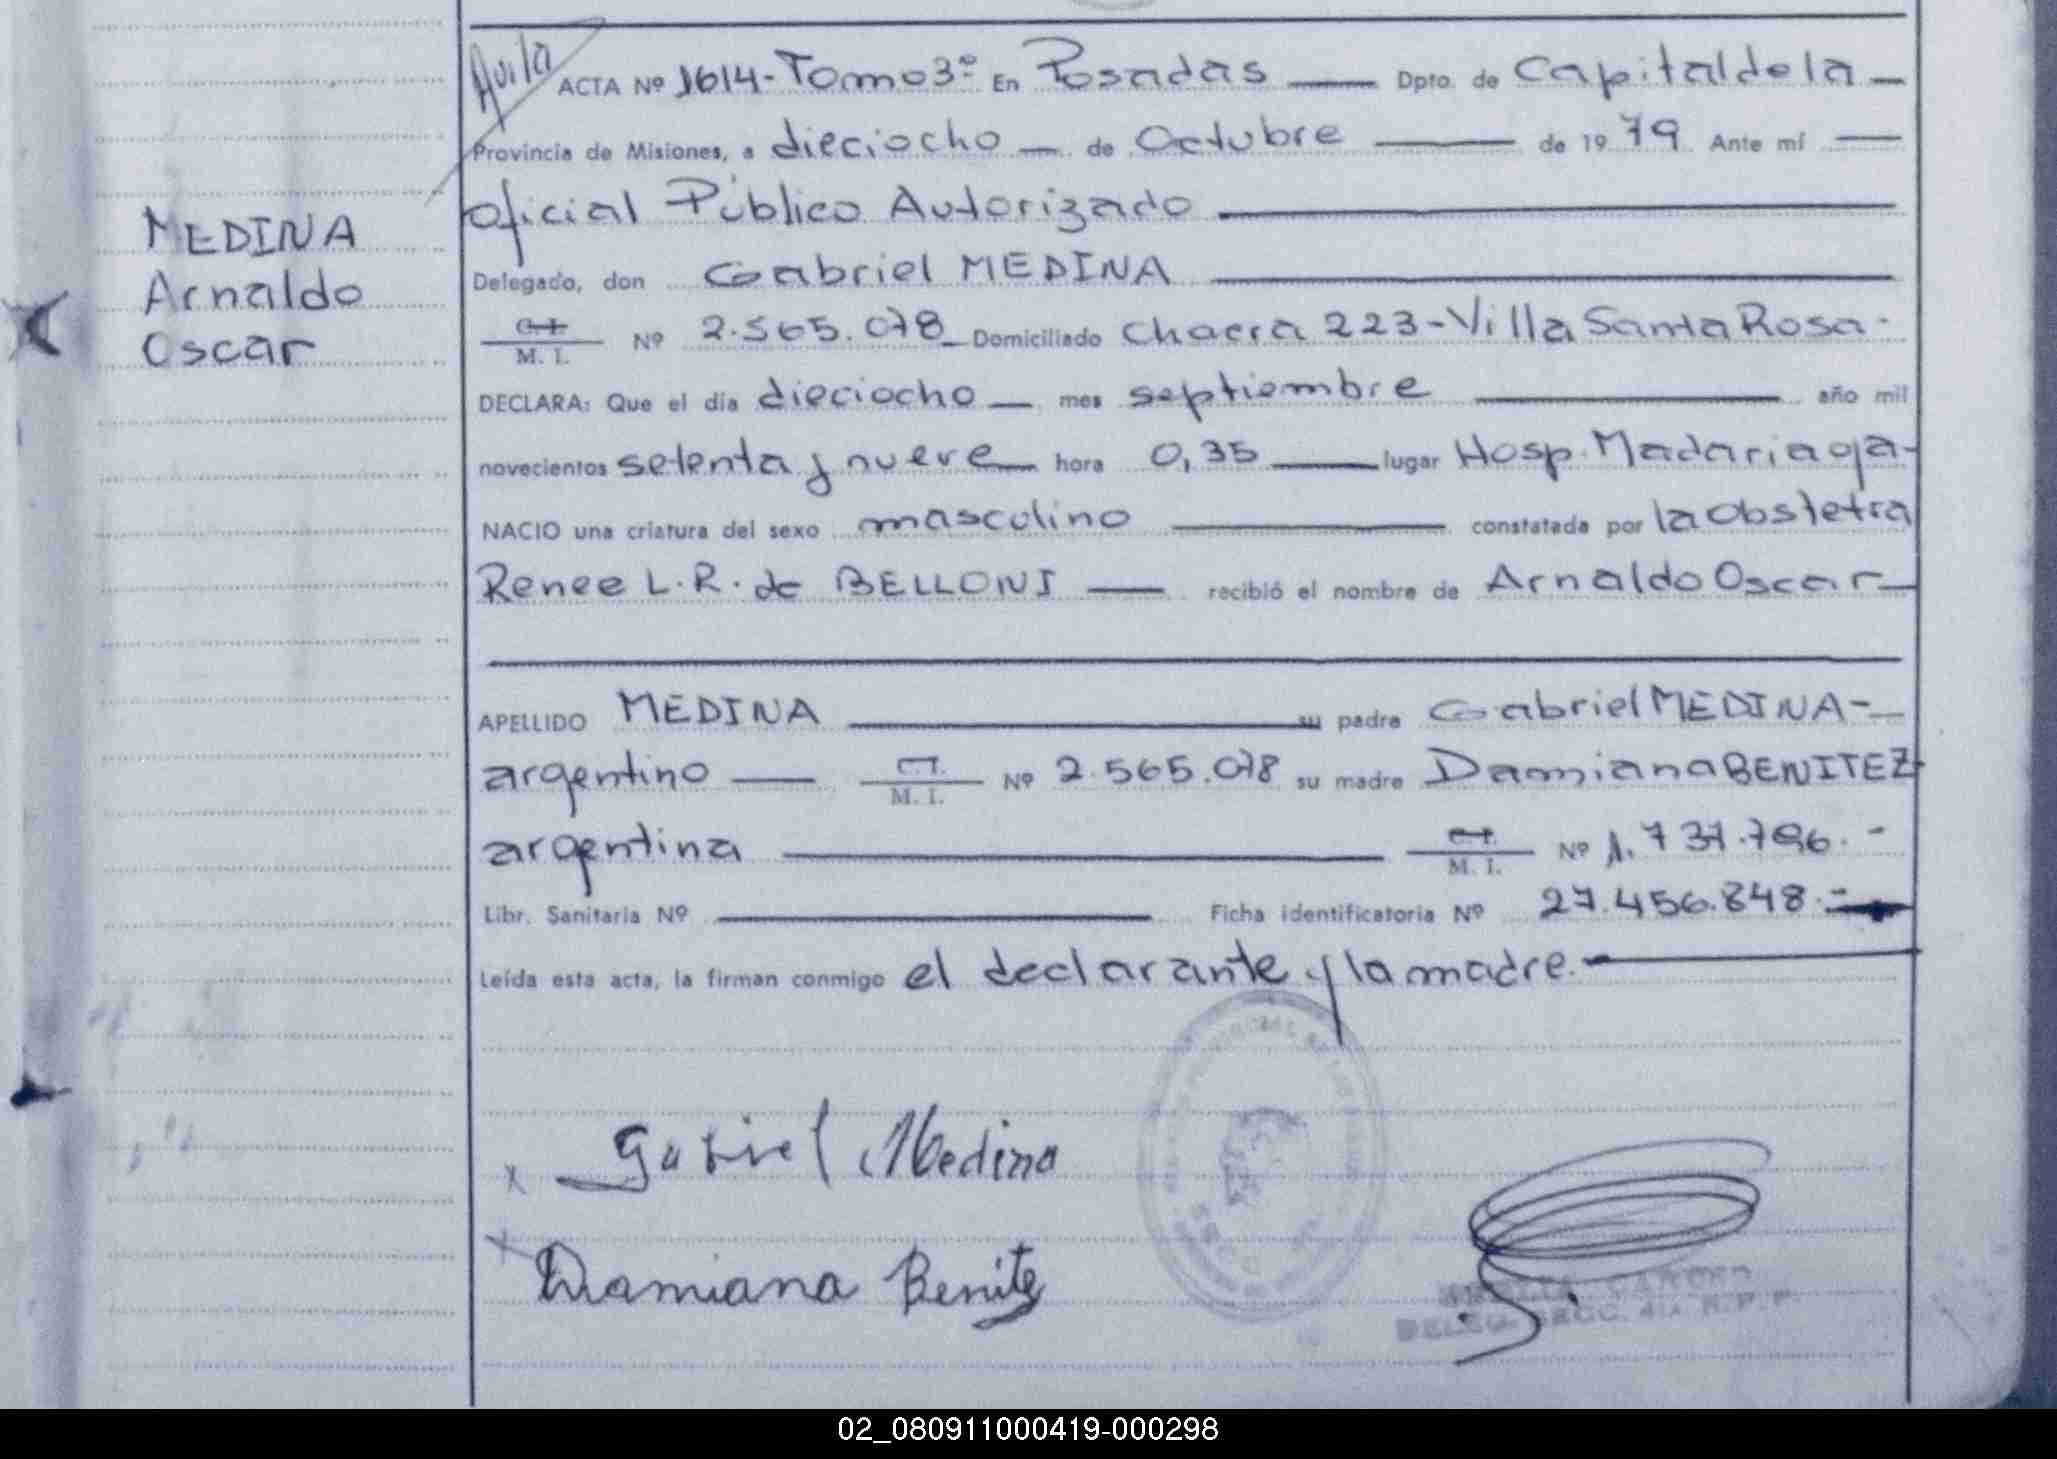 Avila
ACTA Nº 1614-Tomo3º En Posadas — Dpto. de Capital de la —
Provincia de Misiones, a dieciocho — de Octubre — de 1979 Ante mí —
oficial Público Autorizado
MEDINA
Arnaldo
Oscar
Delegado, don Gabriel MEDINA
M. I. Nº 2.565.078 Domiciliado Chacra 223-Villa Santa Rosa-
DECLARA: Que el día dieciocho — mes septiembre — año mil
novecientos setenta y nueve — hora 0,35 — lugar Hosp. Madariaga-
NACIO una criatura del sexo masculino — constatada por la obstetra
Renee L. R. de BELLONI — recibió el nombre de Arnaldo Oscar —
APELLIDO MEDINA — su padre Gabriel MEDINA-
argentino — C.I. M. I. Nº 2.565.078 su madre Damiana BENITEZ
argentina — C.I. M. I. Nº 1.737.796.-
Libr. Sanitaria Nº — Ficha identificatoria Nº 27.456.848.-
Leída esta acta, la firman conmigo el declarante y la madre.-
x Gabriel Medina
x Damiana Benitez
DELEG. SECC. 4ta. R. P. P.
02_080911000419-000298